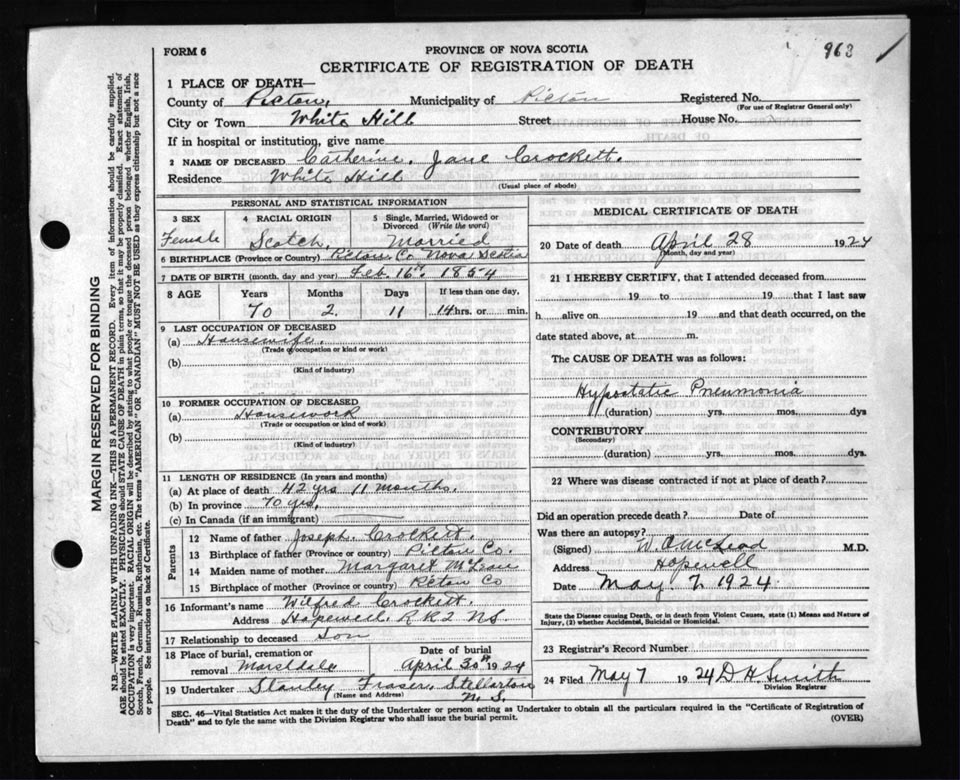 963
FORM 6
PROVINCE OF NOVA SCOTIA
CERTIFICATE OF REGISTRATION OF DEATH
1 PLACE OF DEATH—
County of Pictou, Municipality of Pictou Registered No.
(For use of Registrar General only)
City or Town White Hill Street House No.
If in hospital or institution, give name
2 NAME OF DECEASED Catherine Jane Crockett.
Residence White Hill
(Usual place of abode)
PERSONAL AND STATISTICAL INFORMATION
3 SEX 4 RACIAL ORIGIN 5 Single, Married, Widowed or Divorced (Write the word)
Female Scotch Married
6 BIRTHPLACE (Province or Country) Pictou Co Nova Scotia
7 DATE OF BIRTH (month, day and year) Feb. 16th 1854
8 AGE Years Months Days If less than one day,
70 2 11 14 hrs. or min.
9 LAST OCCUPATION OF DECEASED
(a) Housewife.
(Trade or occupation or kind or work)
(b)
(Kind of industry)
10 FORMER OCCUPATION OF DECEASED
(a) Housework
(Trade or occupation or kind of work)
(b)
(Kind of industry)
11 LENGTH OF RESIDENCE (In years and months)
(a) At place of death 42 yrs 11 months.
(b) In province 70 yrs.
(c) In Canada (if an immigrant)
Parents
12 Name of father Joseph Crockett.
13 Birthplace of father (Province or country) Pictou Co.
14 Maiden name of mother Margaret McLean
15 Birthplace of mother (Province or country) Pictou Co
16 Informant's name Wilfred Crockett.
Address Hopewell R R 2 N.S.
17 Relationship to deceased Son
18 Place of burial, cremation or removal Date of burial
April 30th 1924
19 Undertaker Stanley Fraser, Stellarton
(Name and Address) N.S.
MEDICAL CERTIFICATE OF DEATH
20 Date of death April 28 1924
(Month, day and year)
21 I HEREBY CERTIFY, that I attended deceased from
19 to 19 that I last saw
h alive on 19 and that death occurred, on
date stated above, at m.
The CAUSE OF DEATH was as follows:
Hypostatic Pneumonia
(duration) yrs. mos. dys
CONTRIBUTORY
(Secondary)
(duration) yrs. mos. dys.
22 Where was disease contracted if not at place of death?
Did an operation precede death? Date of
Was there an autopsy?
(Signed) McLeod M.D.
Address Hopewell
Date May 7, 1924.
State the Disease causing Death, or in death from Violent Causes, state (1) Means and Nature of
Injury, (2) whether Accidental, Suicidal or Homicidal.
23 Registrar's Record Number
24 Filed May 7 1924 D H Smith
Division Registrar
SEC. 46—Vital Statistics Act makes it the duty of the Undertaker or person acting as Undertaker to obtain all the particulars required in the "Certificate of Registration of
Death" and to fyle the same with the Division Registrar who shall issue the burial permit.
(OVER)
MARGIN RESERVED FOR BINDING
N.B.—WRITE PLAINLY WITH UNFADING INK—THIS IS A PERMANENT RECORD. Every item of information should be carefully supplied.
AGE should be stated EXACTLY. PHYSICIANS should STATE CAUSE OF DEATH in plain terms, so that it may be properly classified. Exact statement of
OCCUPATION is very important. RACIAL ORIGIN will be described by stating to what people or tongue the deceased person belonged whether English, Irish,
Scotch, French, German, Russian, Ruthenian, etc. The terms "AMERICAN" OR "CANADIAN" MUST NOT BE USED as they express citizenship but not a race
or people. See instructions on back of Certificate.